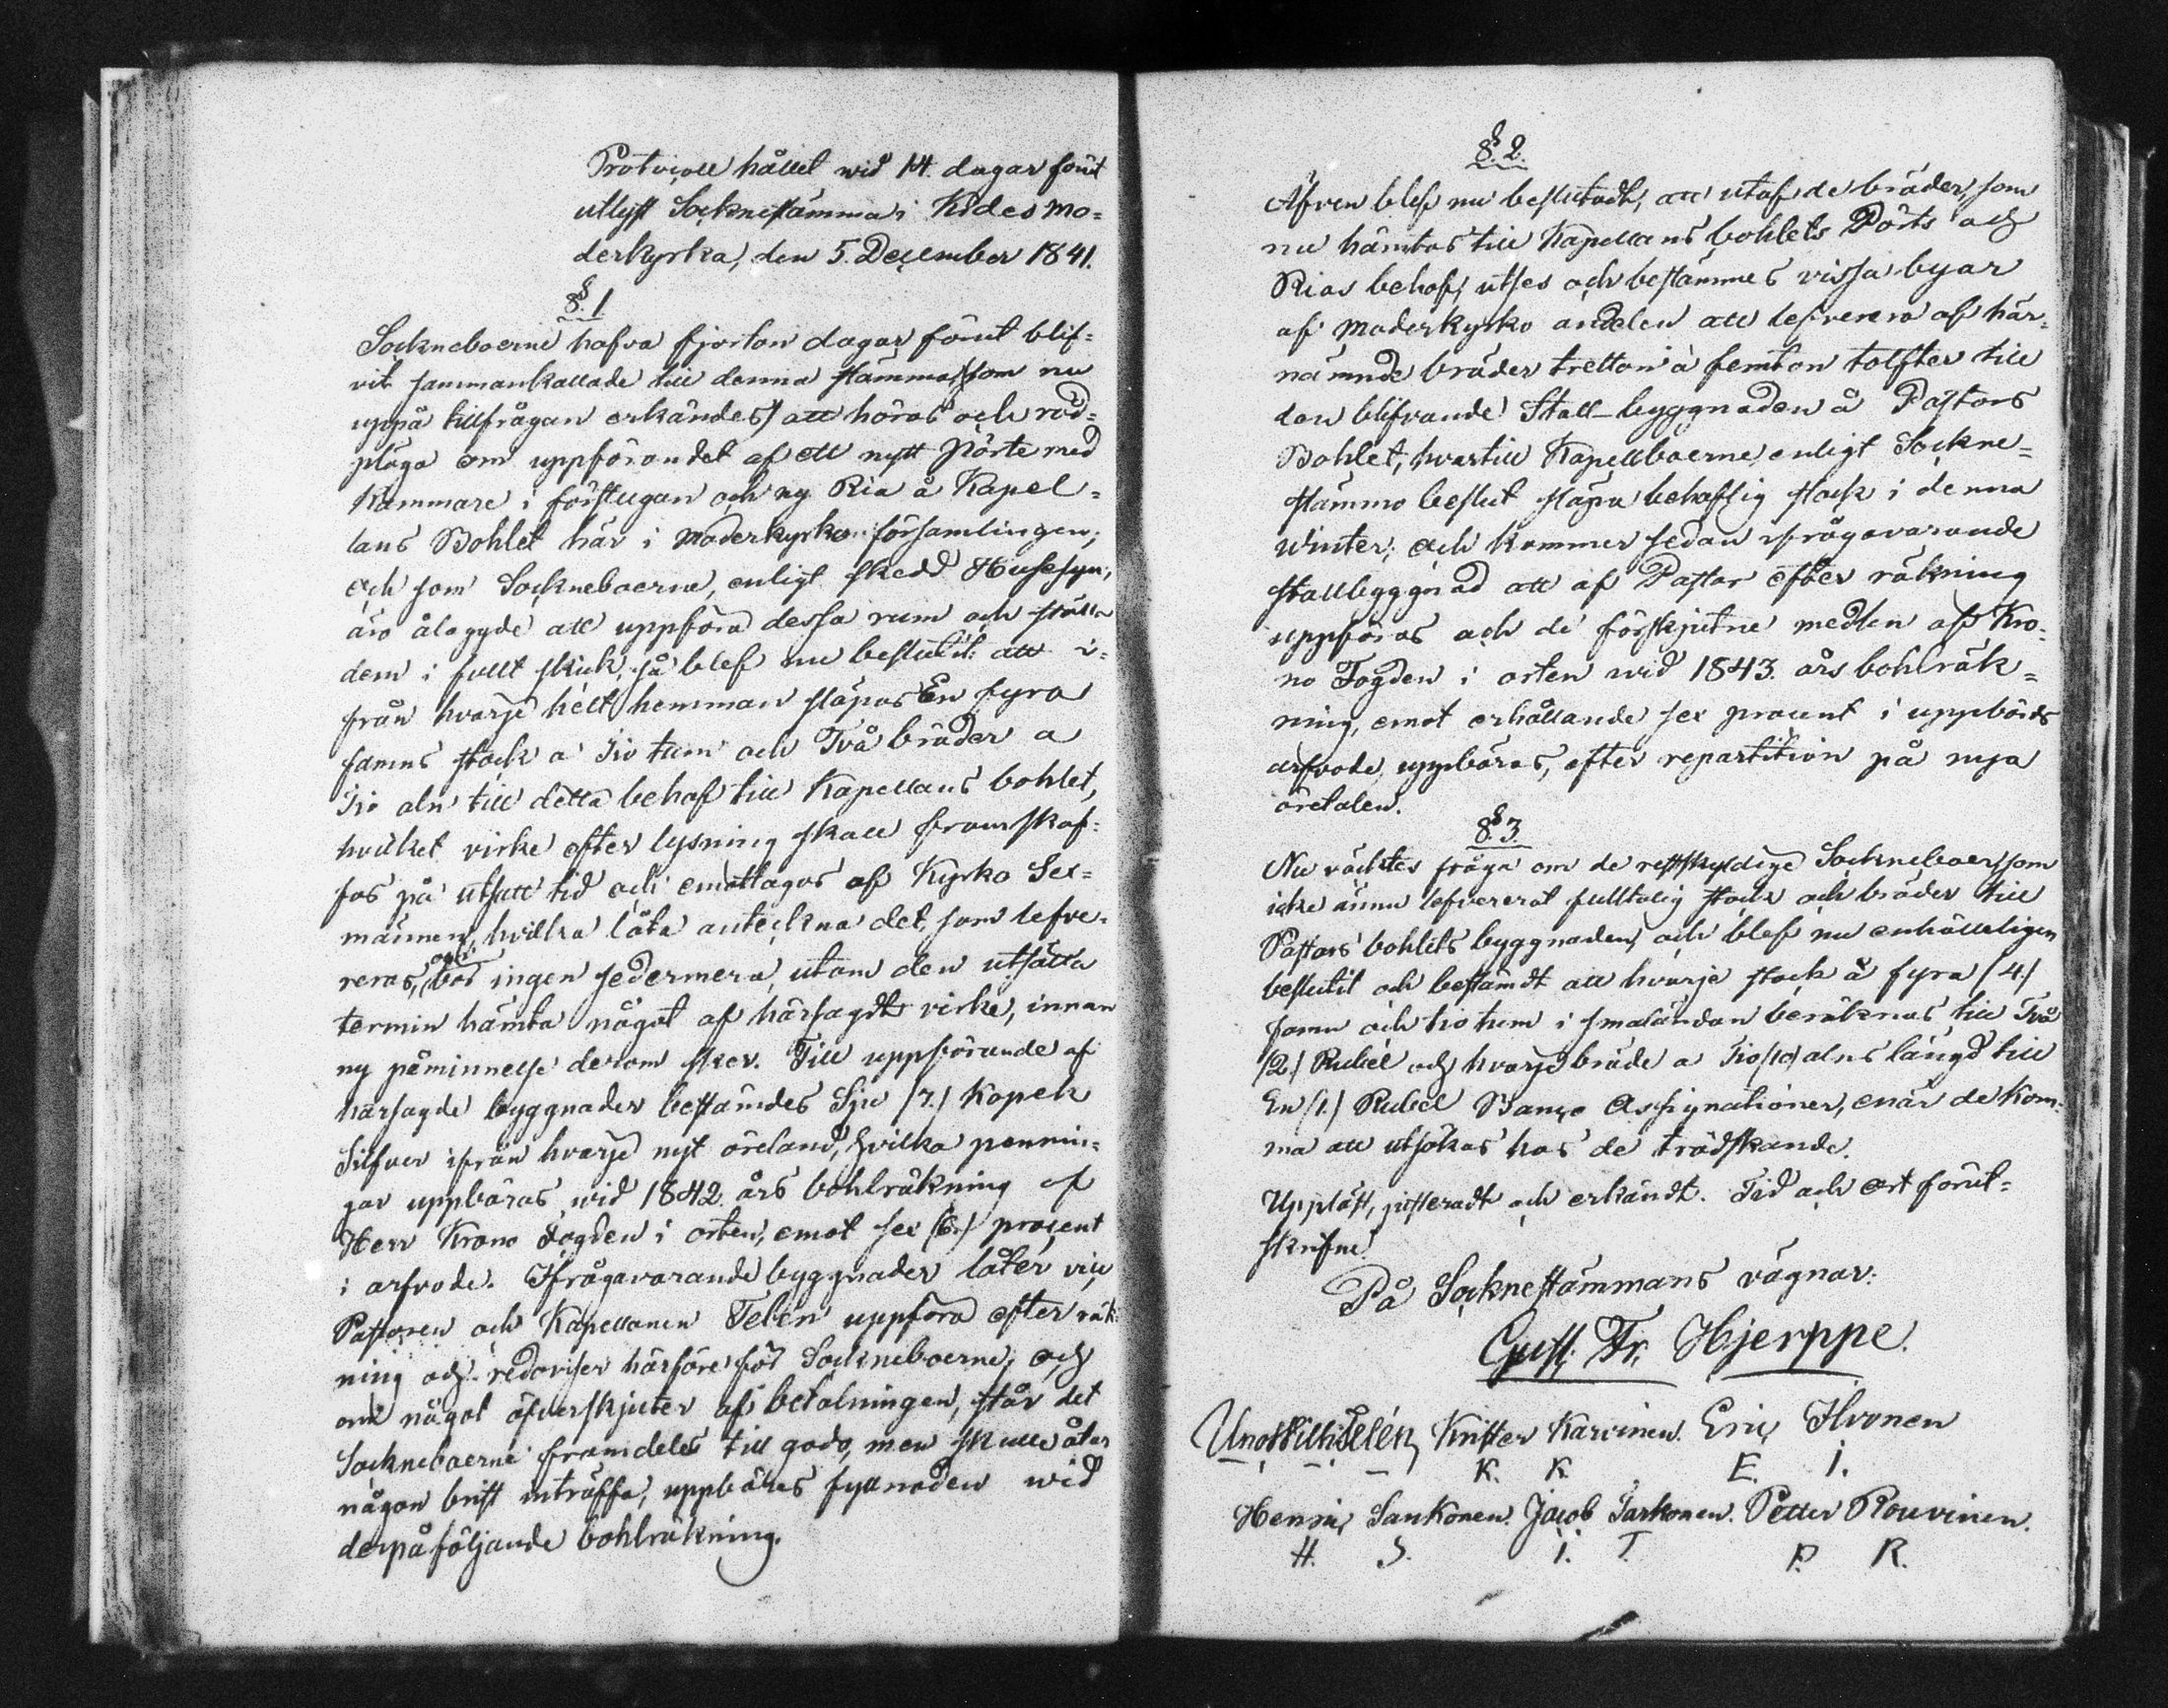 Protocoll hållet wid 14. dagar förut
utlyst Socknestämma i Kides Mo=
derkyrka, den 5. December 1841.
§. 1
Sockneboerne hafva fjorton dagar förut blif=
vit sammankallade till denna stämma, (som nu
uppå tillfrågan erkändes) att höras och råd=
pläga om uppförandet af ett nytt Pörte med
Kammare i förstugan och ny Ria å Kapel=
lans Bohlet här i Moderkyrko församlingen;
och som Socknebo­erne, enligt skedd Husesyn,
äro ålagde att uppföra dessa rum och ställa
dem i fullt skick; så blef nu beslutit: att i=
från hvarje helt hemman släpas En fyra
famns stock a Tio tum och Två bräder a
Tio aln till detta behof till Kapellans bohlet,
hvilket virke efter lysning skall framskaf=
fas på utsatt tid och emottagas af Kyrko Sex=
männen, hvilka låta anteckna det, som lefve=
reras, och bör ingen sedermera, utom den utsatta
termin hämta något af härsagdt virke, innan
ny påminnelse derom sker. Till uppförande af
härsagde byggnader bestämdes Sju (7.) Kopek
Silfver ifrån hvarje nytt öreland, hvilka pennin=
gar uppbäras wid 1842 års bohlräkning af
Herr Krono Fogden i orten, emot sex (6.) procent
i arfvode. Ifrågavarande byggnader låter vice
Pastoren och Kapellanen Telén uppföra efter räk=
ning och redoviser härföre för Socknebo­erne; och
om något öfverskjuter af betalningen, står det
Socknebo­erne framdeles till godo, men skulle åter
någon brist inträffa, uppbäres fyllnaden wid
derpåföljande bohlräkning.
§. 2.
Äfven blef nu beslutadt, att utaf de bräder, som
nu hämtas till Kapellans bohlets Pörts och
Rias behof, utses och bestämmes vissa byar
af Moderkyrko andelen att lefverera af här=
nämnde bräder tretton à femton tolfter till
den blifvande Stall-byggnaden å Pastors
Bohlet, hvartill Kapellboerne, enligt Sockne=
stämmo beslut släpa behöflig stock i denna
Winter; och kommer sedan ifrågavarande
stallbyggnad att af Pastor efter räkning
uppföras och de förskjutne medlen af Kro=
no Fogden i orten wid 1843. års bohlräk=
ning, emot erhållande sex procent i uppbörds
arfvode, uppbäras, efter repartition på nya
öretalen.
§. 3.
Nu väcktes fråga om de restskyldige Socknebo­er, som
icke ännu lefvererat fulltalig stock och bräder till
Pastors bohlets byggnaden, och blef nu enhälleligen
beslutit och bestämdt att hvarje stock à fyra (4.)
famn och tio tum i smaländan beräknas till Två
(2.) Rubel och hvarje bräde a Tio (10) alns längd till
En (1.) Rubel Banco Assignationer, enär de kom=
ma att utsökas hos de trädskande.
Uppläst, justeradt och erkändt. Tid och ort förut=
skrifne.
På Socknestämmans vägnar:
Gust. Fr. Hjerppe.
Krister Karvinen. Eric Ihvonen
K. K. E. I.
Henric Sankonen. Jacob Tarkonen. Petter Rouvinen.
H. S. I. T. P. R.